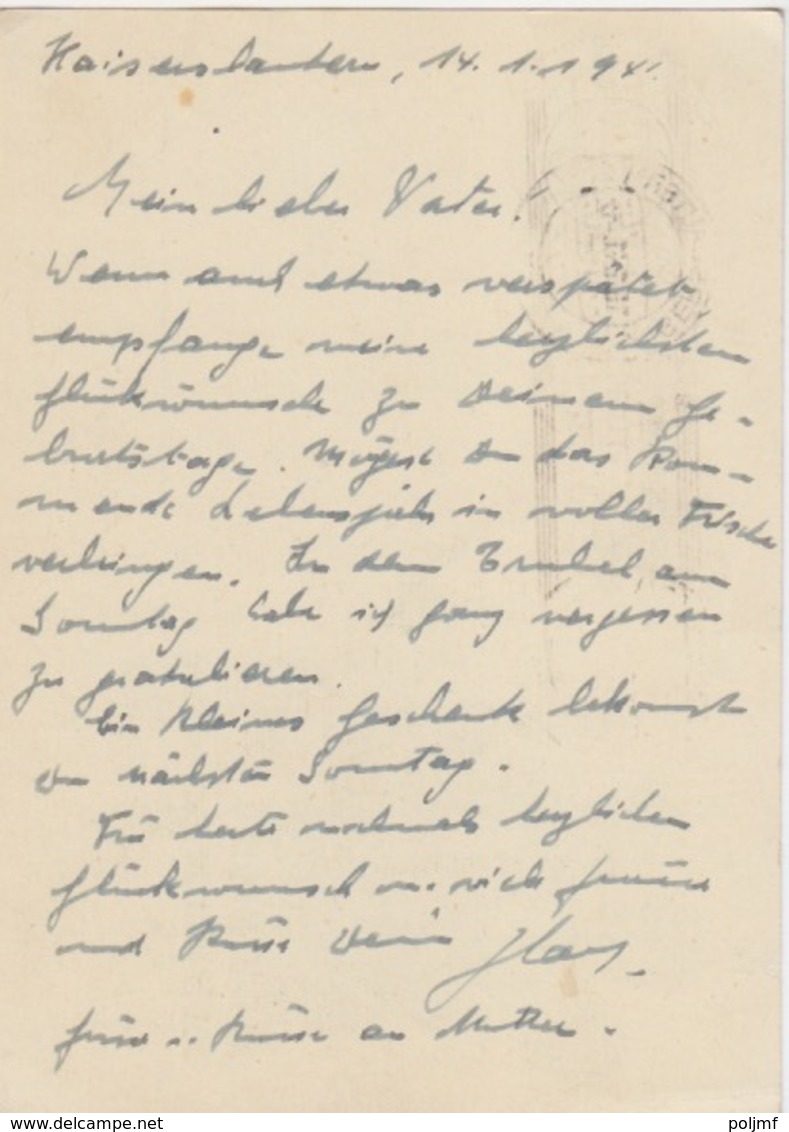 Kaiserslautern, 14.1.1941
Mein lieber Vater!
Wenn auch etwas verspätet,
empfange meine herzlichsten
Glückwünsche zu Deinem Ge-
burtstage. Mögest Du das kom-
mende Lebensjahr in voller Frische
verbringen. In dem Trubel am
Sonntag habe ich ganz vergessen
zu gratulieren.
Ein kleines Geschenk bekommst
Du nächsten Sonntag.
Für heute nochmals herzlichen
Glückwunsch u. viele Grüße
und Küsse Dein
Grüße u. Küsse an Mutter.
www.delcampe.net
poljmf